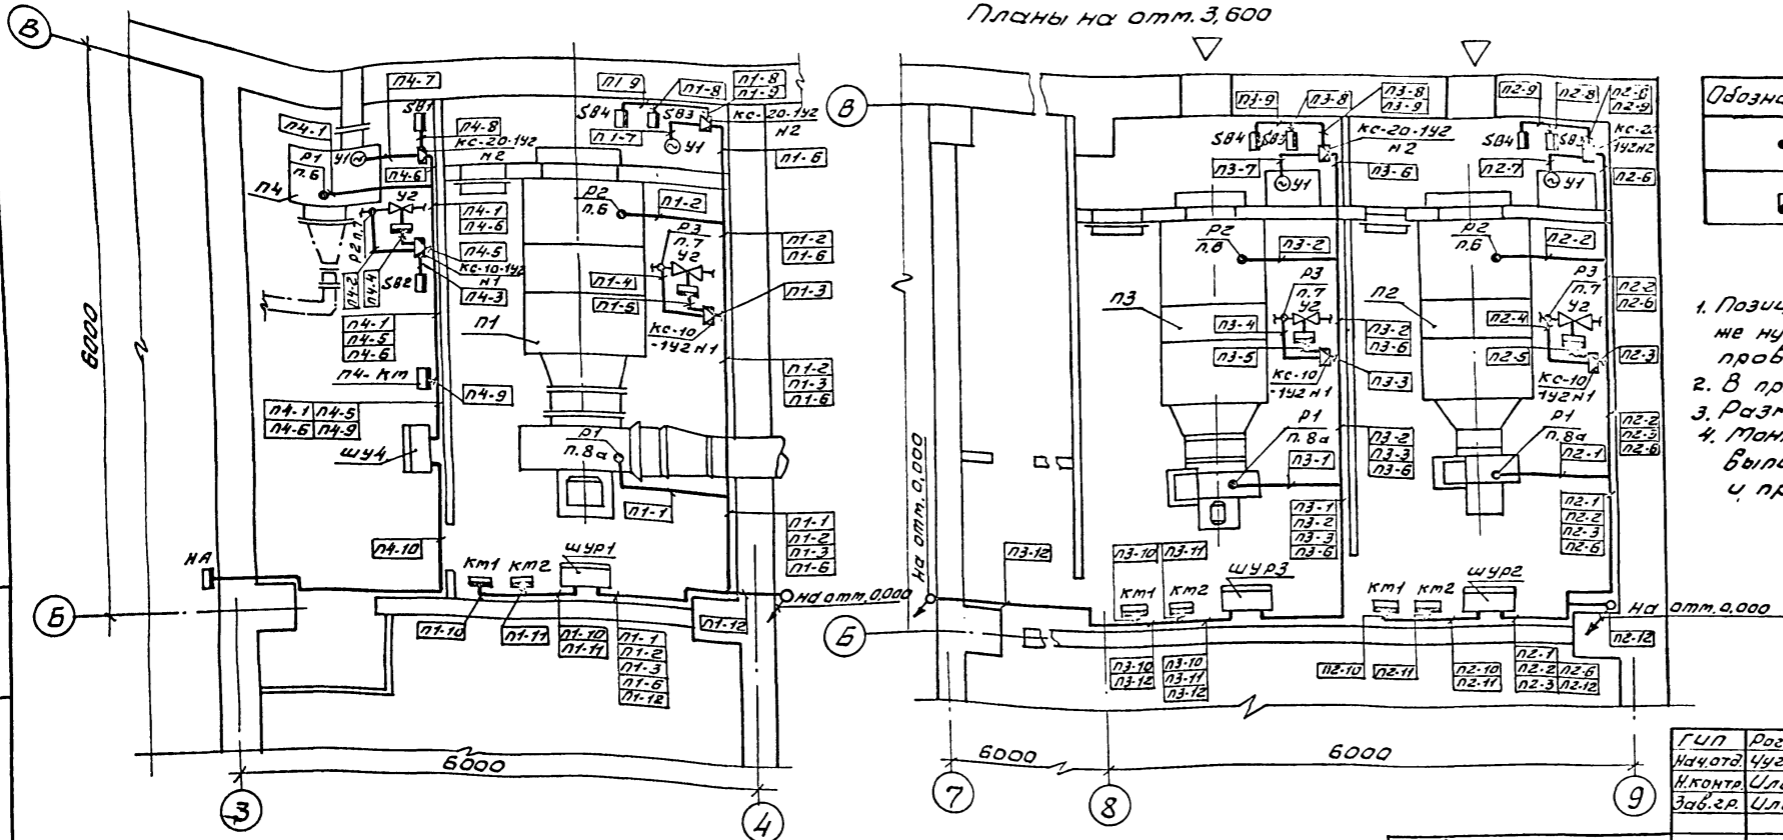 Планы на отм. 3,600
В
6000
Б
НА
П4-7
SB1
П4-1
У1
П4-8
КС-20-1У2
Н2
Р1
п.6
П4-6
П4
У2
П4-1
П4-6
Р2 п.7
П4-2
П4-4
П4-5
КС-10-1У2
Н1
SB2
П4-3
П4-1
П4-5
П4-6
П4-КМ
П4-9
П4-1 П4-5
П4-6 П4-9
ШУ4
П4-10
П1-9
П1-8
П1-8
П1-9
SB4
SB3
КС-20-1У2
Н2
П1-7
У1
П1-6
Р2
п.6
П1-2
Р3
п.7
У2
П1-2
П1-6
П1-4
П1-5
П1-3
КС-10
-1У2Н1
П1
П1-2
П1-3
П1-6
Р1
п.8а
П1-1
П1-1
П1-2
П1-3
П1-6
КМ1
КМ2
ШУР1
На отм. 0,000
П1-12
П1-10
П1-11
П1-10
П1-11
П1-1
П1-2
П1-3
П1-6
П1-12
6000
3
4
В
П3-9
П3-8
П3-8
П3-9
SB4
SB3
КС-20-1У2
Н2
П3-7
У1
П3-6
Р2
п.6
П3-2
Р3
п.7
У2
П3
П3-4
П3-5
П3-2
П3-6
П3-3
КС-10
-1У2Н1
Р1
п.8а
П3-1
П3-2
П3-3
П3-6
П3-1
П3-2
П3-3
П3-6
На отм. 0,000
П3-12
П3-10
П3-11
КМ1
КМ2
ШУР3
П3-10
П3-12
П3-10
П3-11
П3-12
Б
П2-9
П2-8
П2-8
П2-9
SB4
SB3
КС-2
1У2Н2
П2-7
У1
П2-6
Р2
п.6
П2-2
Р3
п.7
У2
П2-2
П2-6
П2
П2-4
П2-5
П2-3
КС-10
-1У2Н1
Р1
п.8а
П2-1
П2-2
П2-3
П2-6
П2-1
П2-2
П2-3
П2-6
КМ1
КМ2
ШУР2
На отм. 0,000
П2-12
П2-10
П2-11
П2-10
П2-11
П2-1
П2-2 П2-6
П2-3 П2-12
6000
6000
7
8
9
Обозна
1. Позиц
же ну
пров
2. В пр
3. Разм
4. Мон
выпо
и пр
ГИП Рог
Нач.отд. Чуг
Н.контр. Иль
Зав.гр. Иль